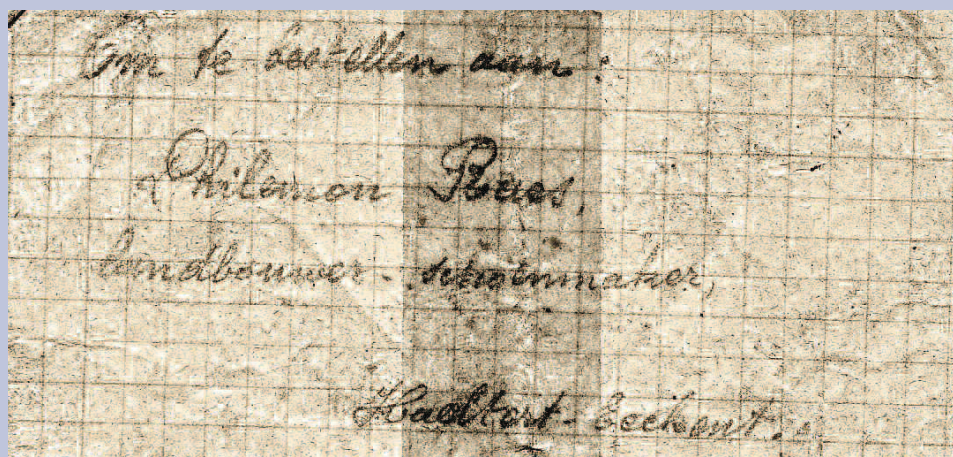 Om te bestellen aan:
Philemon Raes,
landbouwer - schoenmaker,
Haeltert - Eeckent.